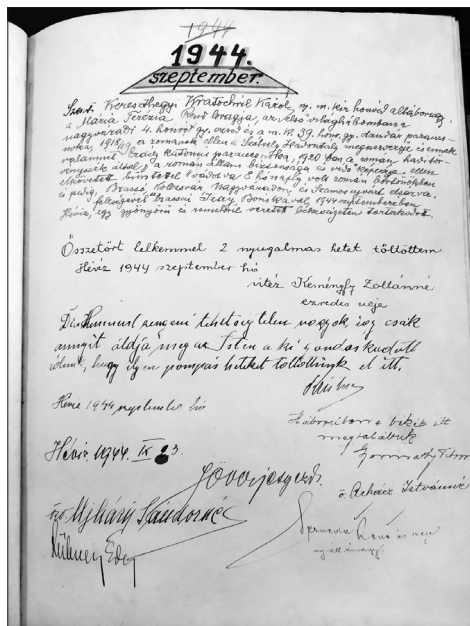 1944
1944.
szeptember.
Szent Kereszthegyi Kratochvil Károly, m. kir. honvéd altábornagy,
a Mária Terézia Rend lovagja, az első világháborúban a
nagyváradi 4. honvéd gy. ezred és a m. k. 39. hon. gy. dandár parancs-
noka, 1918/19 a románok ellen a Székely Hadosztály megszervezője és ennek
valamint Erdély különös parancsnoka, 1920 ban a román haditör-
vényszék által, a román állam biztonsága és védő képessége ellen
elkövetett bűntettel vádolva 8 hónapig volt román börtönökben
és pedig, Brassó, Kolozsvár, Nagyváradon, és Szamosujvárt elzárva.
feleségével brassói Irály Boriskával 1944 szeptemberében
Hévíz, egy gyönyörű és remélve vezetett békeszigeten tartózkodott.
Összetört lelkemmel 2 nyugalmas hetet töltöttem
Hévíz 1944 szeptember hó
vitéz Keményfy Zoltánné
ezredes neje
Dicshimnust zengeni tehetségtelen vagyok, így csak
annyit áldja meg az Isten a ki gondoskodott
rólunk, hogy ilyen pompás heteket töltöttünk el itt.
Hévíz 1944 szeptember hó
Háborúban a békét itt
megtaláltuk
Hévíz, 1944. IX 23.
özv. Mihályi Sándorné
ö. Árkász Istvánné